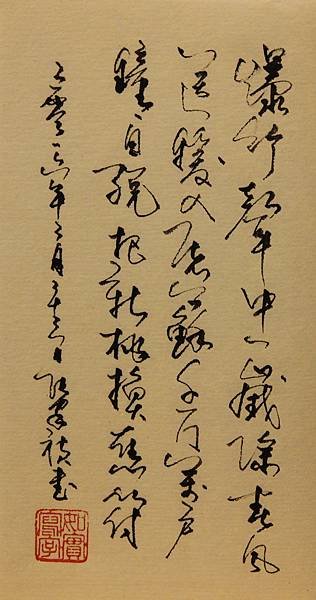 爆竹聲中一歲除春風
送暖入屠蘇千門萬戶
曈曈日總把新桃換舊符
二零一六年二月
書
如實